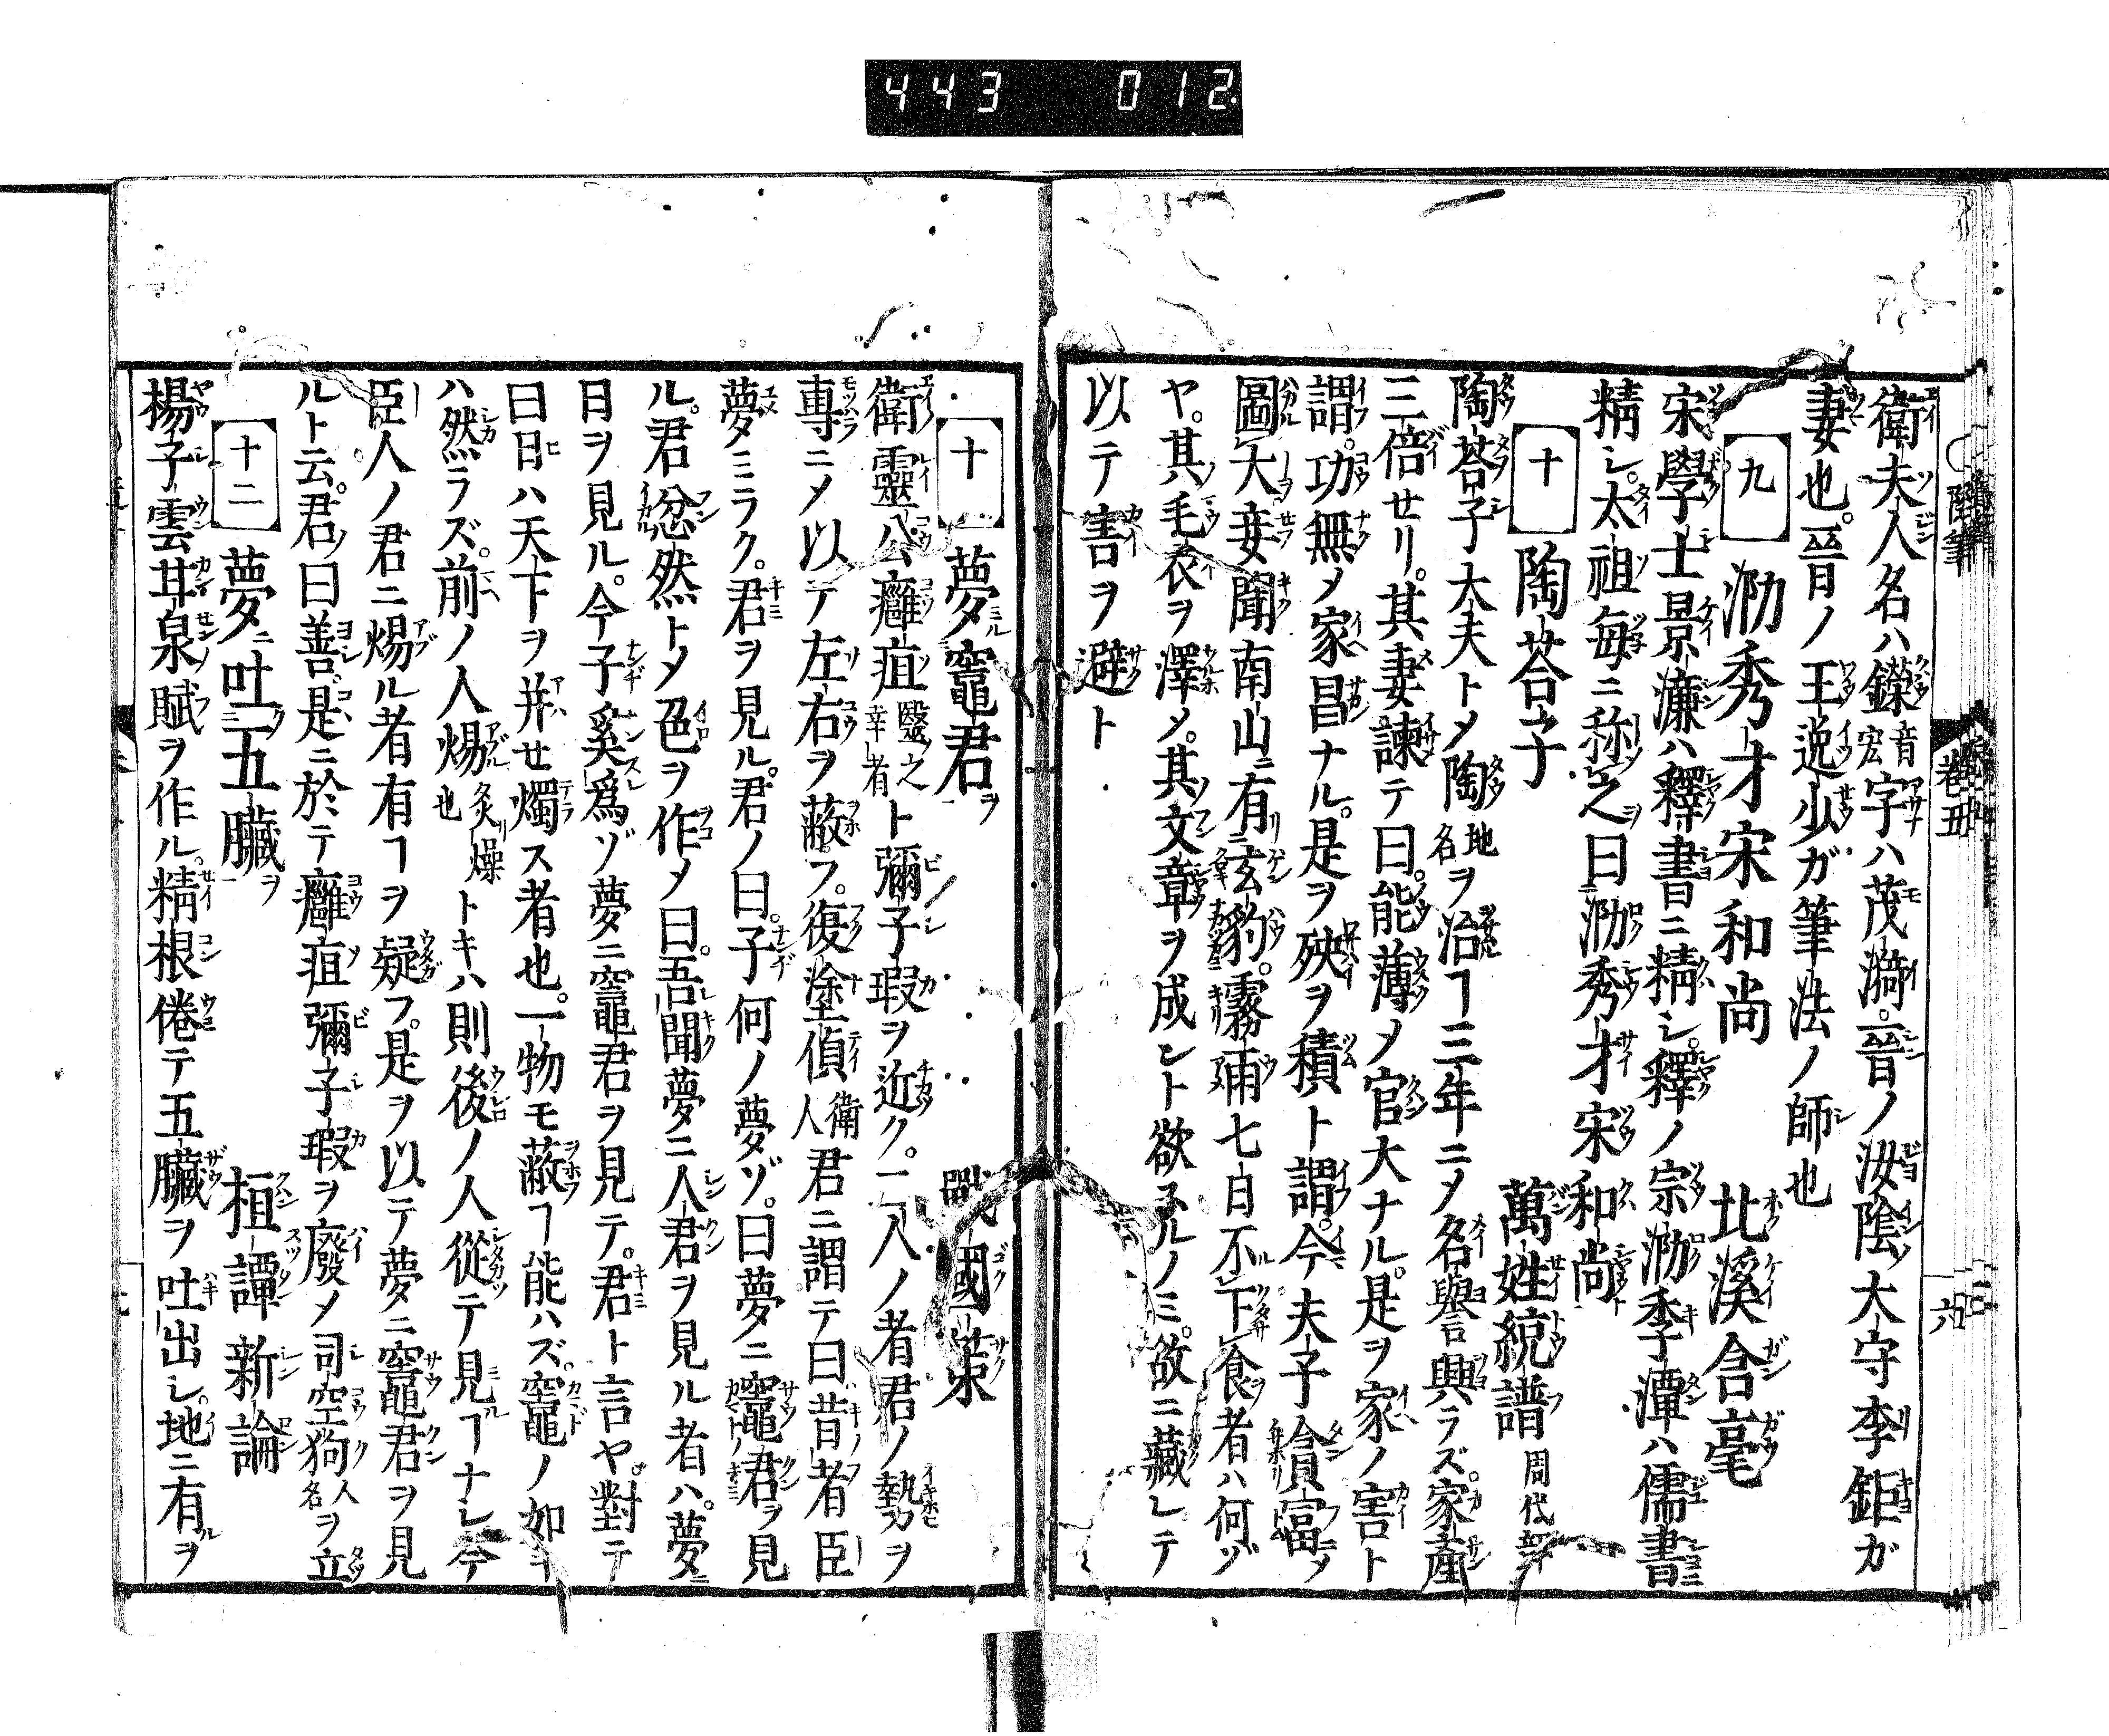 443 012
衛夫人名ハ鑅音宏字ハ茂漪。晉ノ汝陰大守李鉅ガ
妻也。晉ノ王逸少ガ筆法ノ師也
九 泐秀才宋和尚 北溪含毫
宋學士景濂ハ釋書ニ精シ。釋ノ宗泐季潭ハ儒書
精シ。太祖毎ニ称之曰泐秀才宋和尚
十 陶荅子 萬姓統譜
陶荅子大夫トメ陶地名ヲ治ヿ三年ニメ名譽興ラズ。家產
三倍セリ。其妻諫テ曰。能薄メ官大ナル。是ヲ家ノ害ト
謂。功無メ家昌ナル。是ヲ殃ヲ積ト謂。今夫子貪富ヲ
圖大妾聞南山ニ有玄豹。霧雨七日不下食者ハ何ゾ
ヤ。其毛衣ヲ澤メ。其文章ヲ成ント欲スルノミ。故ニ藏レテ
以テ害ヲ避ト
十 夢竈君ヲ 戰國策
衛靈公癰疽醫之幸者ト彌子瑕ヲ近ク。二人ノ者君ノ勢力ヲ
專ニメ以テ左右ヲ蔽フ。復塗偵衛人君ニ謂テ曰昔者臣
夢ミラク。君ヲ見ル。君ノ曰。子何ノ夢ゾ。曰夢ニ竈君ヲ見
ル。君忿然トメ色ヲ作メ曰。吾聞夢ニ人君ヲ見ル者ハ。夢ニ
日ヲ見ル。今子奚爲ゾ夢ニ竈君ヲ見テ。君ト言ヤ。對テ
曰日ハ天下ヲ并セ燭ス者也。一物モ蔽ヿ能ハズ。竈ノ如キ
ハ然ラズ。前ノ人煬炙燥也トキハ則後ノ人從テ見ヿナシ今
臣人ノ君ニ煬ル者有ヿヲ疑フ。是ヲ以テ夢ニ竈君ヲ見
ルト云。君ノ曰善是ニ於テ癰疽彌子瑕ヲ廢メ司空狗人名ヲ立
十二 夢ニ吐五臟ヲ 桓譚新論
揚子雲甘泉賦ヲ作ル。精根倦テ五臟ヲ吐出シ。地ニ有ルヲ